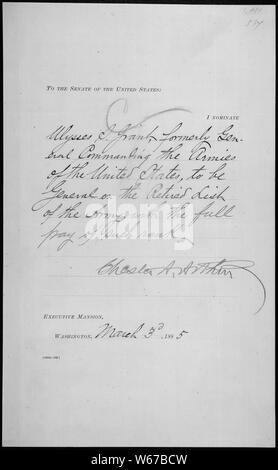 To the Senate of the United States:
I nominate
Ulysses S. Grant, formerly Gen-
eral Commanding the Armies
of the United States, to be
General on the Retired List
of the Army, with the full
pay of such rank.
Chester A. Arthur
Executive Mansion,
Washington, March 3d 1885
alamy
Image ID: W67BCW
www.alamy.com